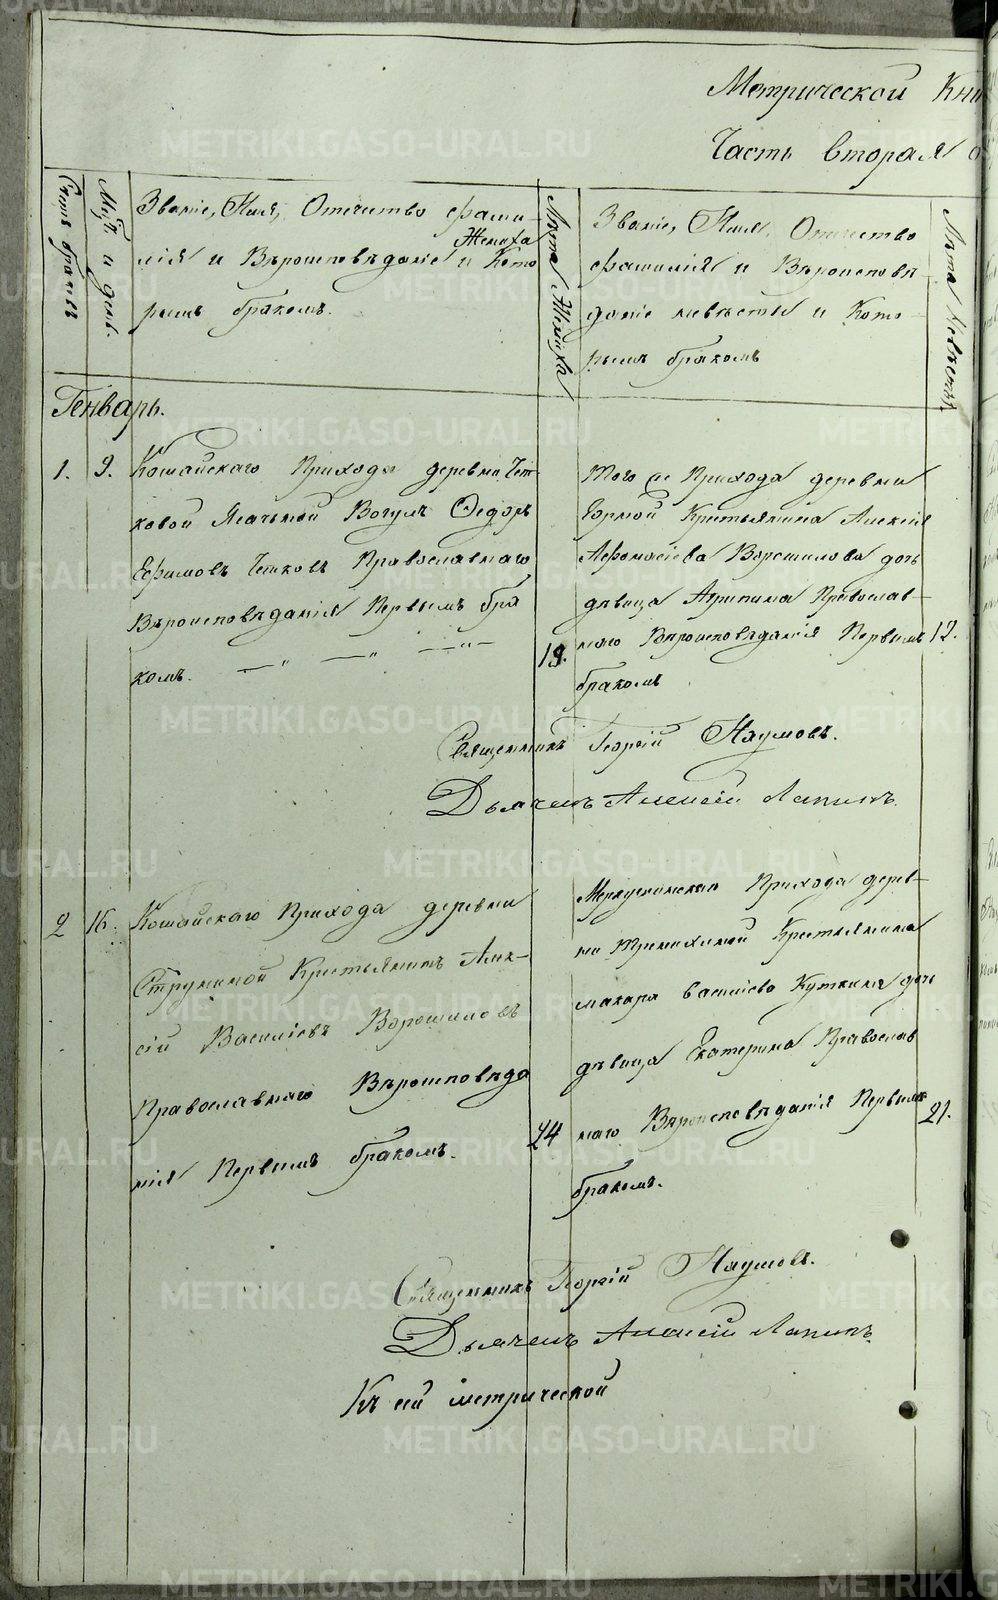 Метрической Кни
Часть вторая о
Счетъ браковъ
Мѣсяцъ и день.
Званіе, Имя, Отечество фами-
лія и Вѣроисповѣданіе Жениха и Кото
рымъ бракомъ.
Лѣта Жениха
Званіе, Имя, Отечество
фамилія и Вѣроисповѣ
даніе невѣсты и Кото-
рымъ бракомъ
Лѣта Невѣсты
Генварь.
1.
9.
Кошайскаго Прихода деревни Чет-
ковой Ясачной Вогулъ Ѳедоръ
Ефимовъ Четковъ Православнаго
Вѣроисповѣданія Первымъ бра
комъ.
19.
Того же Прихода деревни
Крестьянина Алексія
Афонасіева Ворошилова дочь
дѣвица Агрипина Православ-
наго Вѣроисповѣданія Первымъ
бракомъ
Священникъ Георгій Наумовъ.
Дьячекъ Алексій Лапинъ.
2
16.
Кошайскаго Прихода деревни
Струниной Крестьянинъ Алек-
сій Василіевъ Ворошиловъ
Православнаго Вѣроисповѣда
нія Первымъ бракомъ.
24
Меркушинскаго Прихода дерев-
ни Крестьянина
макара василіева Куткина дочь
дѣвица Екатерина Православ
наго Вѣроисповѣданія Первымъ
бракомъ.
21.
Священникъ Георгій Наумовъ.
Дьячекъ Алексій Лапинъ.
Къ сей метрической
METRIKI.GASO-URAL.RU